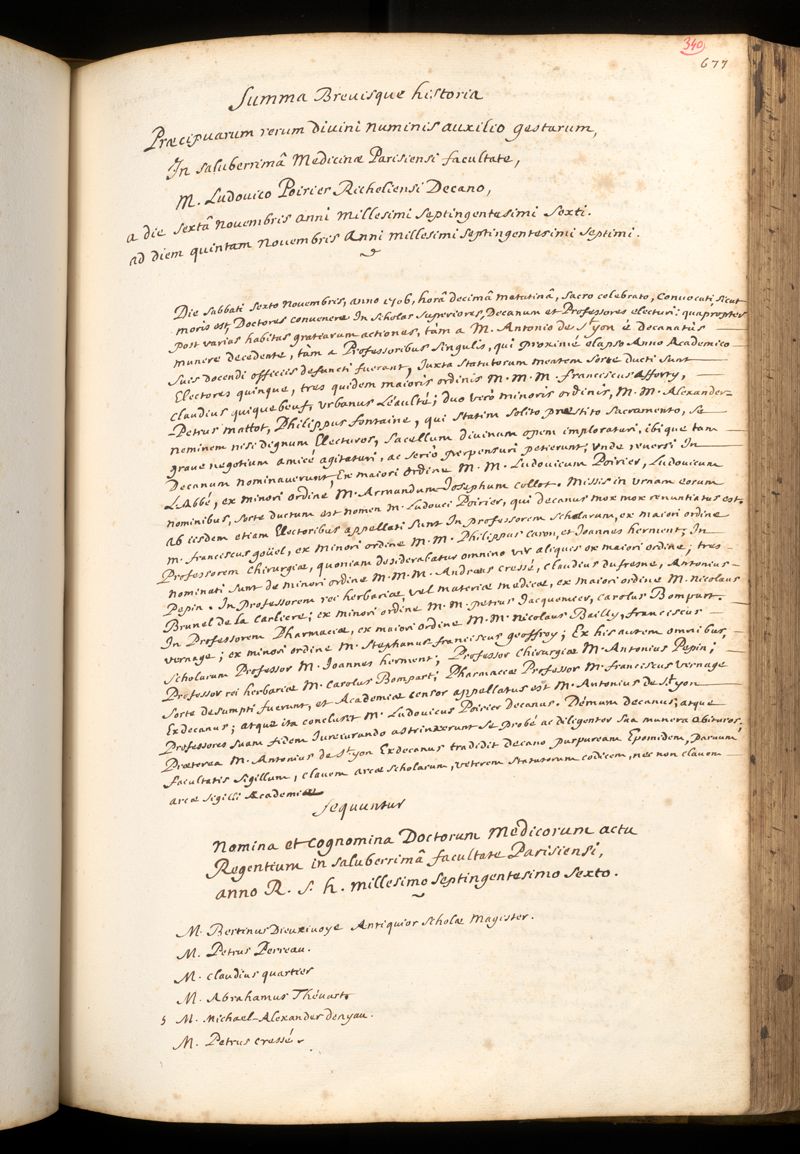 340
677
Summa Brevisque historia
Præcipuarum rerum divini numinis auxilio gestarum,
In saluberrimâ Medicinæ Parisiensi facultate,
M. Ludovico Poirier Richoliensi Decano,
a die sextâ Novembris anni millesimi septingentesimi sexti.
ad diem quintam Novembris Anni millesimi septingentesimi septimi.
Die sabbati sexto Novembris, anno 1706, horâ decimâ matutinâ, sacro celebrato, Convocati, sicut
moris est, Doctores convenere In scholas superiores, Decanum et Professores electuri: quapropter
post varias habitas gratearum actiones, tàm a M. Antonio de St yon è Decanatûs
munere decedente, tàm a Professoribus singulis, qui proximè elapso Anno Academico
suis docendi officiis defuncti fuerant, Iuxta statutorum mentem sorte ducti sunt
Electores quinque, tres quidem maioris ordinis M. M. M. franciscus Afforty,
Claudius quiquebeuf, Urbanus Léaulté; duo verò minoris ordinis, M. M. Alexander-
Petrus mattot, Philippus fontaine, qui statim solito præstito sacramento, se
neminem nisi dignum Electuros, sacellum divinum opem imploraturi, ibique tam
grave negotium amicè agitaturi, ac seriò perpensuri petierunt; unde reversi In
Decanum nominaverunt, Ex maiori Ordine M. M. Ludovicum Poirier, Ludovicum
L'Abbé, ex minori ordine M. Armandum-Josephum collot. Missis in urnam eorum
nominibus, sorte ductum est nomen M. Ludovici Poirier, qui decanus mox renuntiatus est.
ab iisdem etiam Electoribus appellati sunt In professorem scholarum, ex maiori ordine
M. franciscus goüel, ex minori ordine M. M. Philippus Caron, et Joannes herment; In
Professorem Chirurgiæ, quoniam desiderabatur omnino vir aliquis ex maiori ordine, tres
nominati sunt de minori ordine M. M. M. Andreas Cressé, Claudius dufresne, Antonius
Pepin. In Professorem rei herbariæ, vel materiæ medicæ, ex maiori ordine M. Nicolaus
Brunel de la Carliere; ex minori ordine M. M. petrus Jacquemier, Carolus Bompart.
In Professorem Pharmaciæ, ex maiori ordine M. M. Nicolaus Bailly, franciscus
vernage; ex minori ordine M. Stephanus franciscus geoffroy; Ex his autem omnibus,
scholarum Professor M. Joannes herment; Professor Chirurgiæ M. Antonius Pepin;
Professor rei herbariæ M. Carolus Bompart; Pharmaciæ Professor M. franciscus vernage
sorte desumpti fuerunt, et Academiæ Censor appellatus est M. Antonius de St yon
Exdecanus; atque ita conclusit M. Ludovicus Poirier Decanus. Démum decanus, atque
Professores suam fidem Iureiurando astrinxerunt se probè ac diligenter sua munera obituros.
Præterea M. Antonius de St yon Exdecanus tradidit decano purpuream Epomidem, parvum
facultatis sigillum, clavem arcæ scholarum, veterem statutorum codicem, nec non clavem
arcæ sigilli Academiæ
sequuntur
Nomina et Cognomina Doctorum Medicorum actu
Regentium in saluberrimâ facultate Parisiensi,
anno R. S. h. millesimo septingentesimo sexto.
M. Bertinus Dieuxivoye Antiquior Scholæ Magister.
M. Petrus Perreau.
M. Claudius quartier
M. Abrahamus Thévart
5 M. Michael-Alexander denyau.
M. Petrus cressé